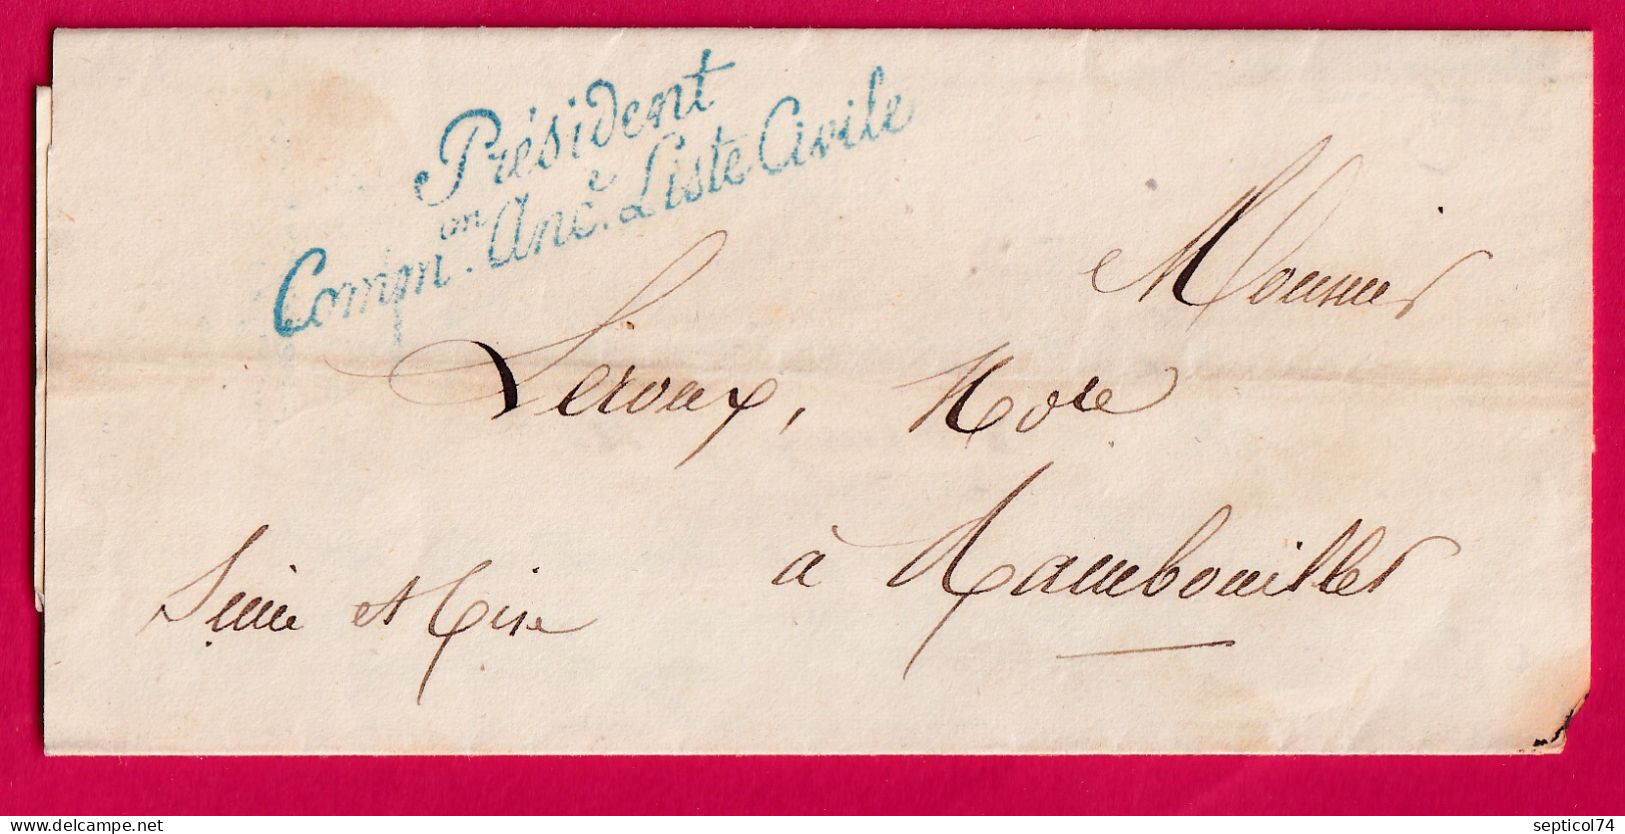 Président
Commᵒⁿ. Ancᵉ. Liste Civile
Monsieur
Leroux, Nore
à Rambouillet
Seine et Oise
delcampe.net
septicol74